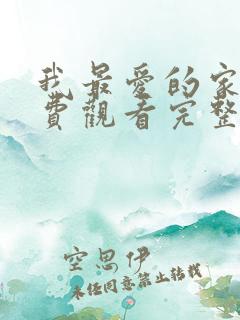 我最爱的家
費觀看完整
空思伊
未经同意禁止转载